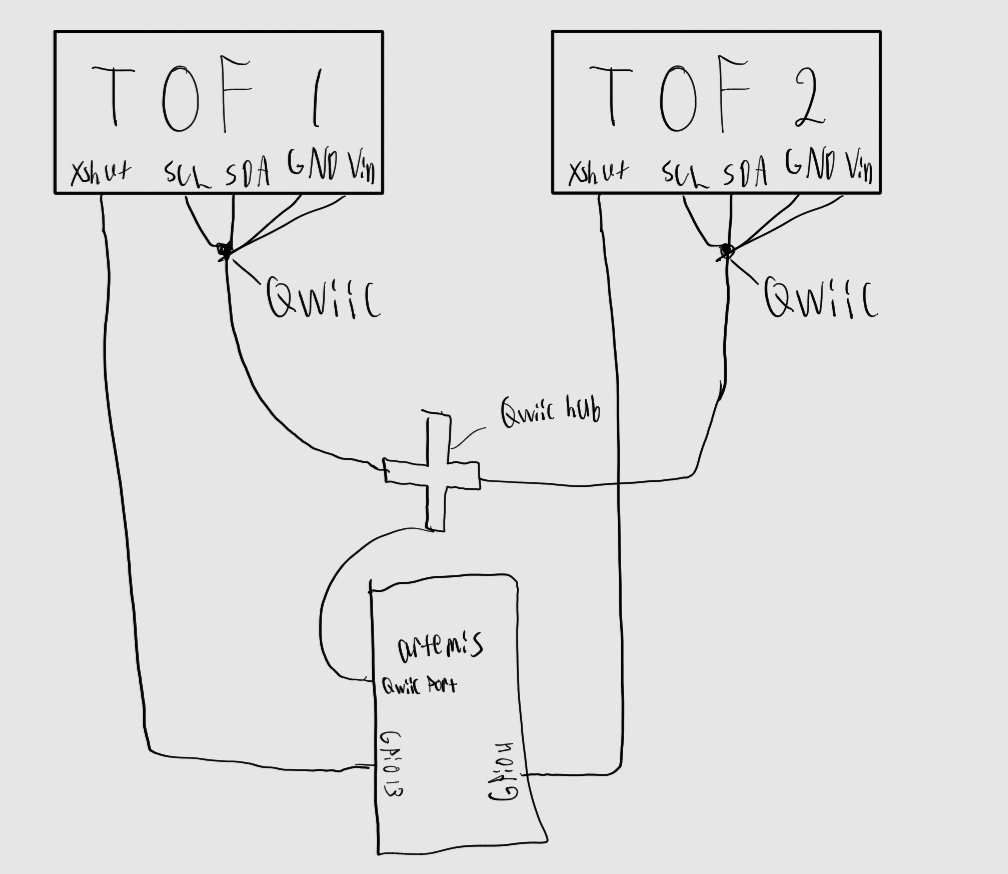 TOF 1
xshut SCL SDA GND Vin
TOF 2
xshut SCL SDA GND Vin
Qwiic
Qwiic
Qwiic hub
artemis
Qwiic Port
GPIO 13